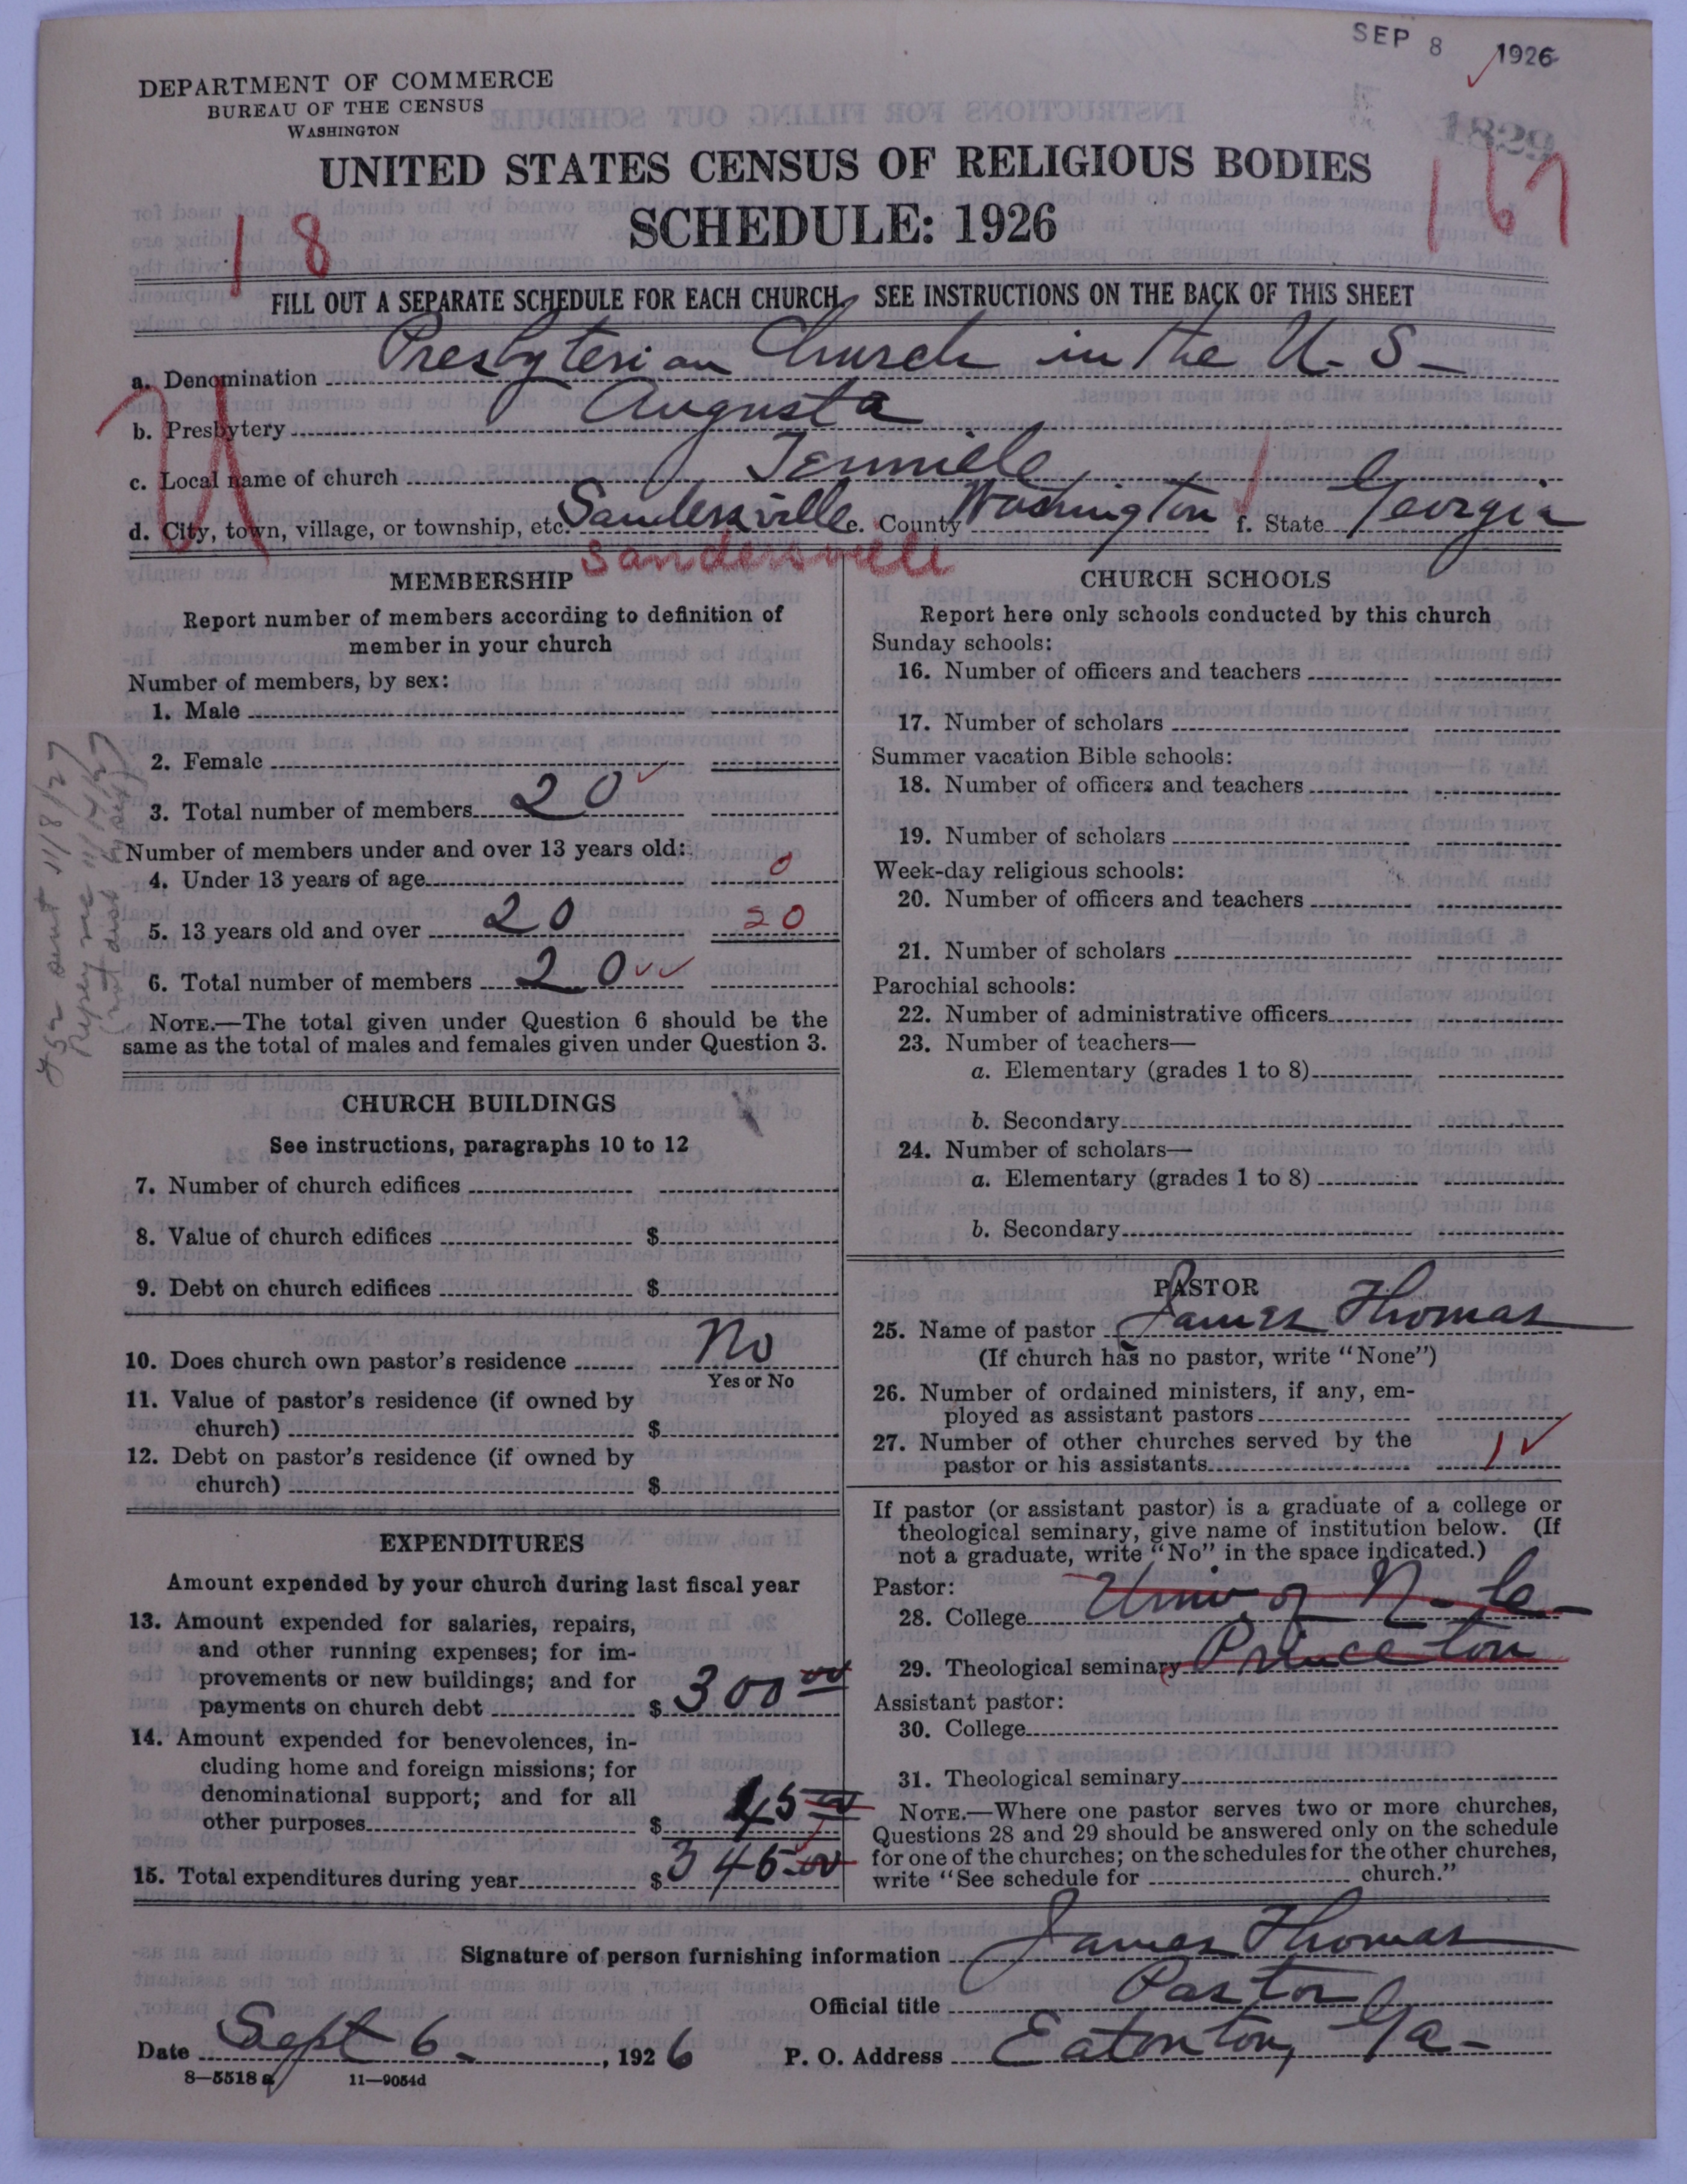 SEP 8 1926
DEPARTMENT OF COMMERCE
BUREAU OF THE CENSUS
WASHINGTON
1829
UNITED STATES CENSUS OF RELIGIOUS BODIES
SCHEDULE: 1926
18
167
FILL OUT A SEPARATE SCHEDULE FOR EACH CHURCH SEE INSTRUCTIONS ON THE BACK OF THIS SHEET
a. Denomination Presbyterian Church in the U. S.
b. Presbytery Augusta
c. Local name of church Tennille
d. City, town, village, or township, etc. Sandersville e. County Washington f. State Georgia
Sandersville
MEMBERSHIP
Report number of members according to definition of
member in your church
Number of members, by sex:
1. Male
2. Female
3. Total number of members 20
Number of members under and over 13 years old:
4. Under 13 years of age 0
5. 13 years old and over 20 20
6. Total number of members 20
NOTE.—The total given under Question 6 should be the
same as the total of males and females given under Question 3.
CHURCH BUILDINGS
See instructions, paragraphs 10 to 12
7. Number of church edifices
8. Value of church edifices $
9. Debt on church edifices $
10. Does church own pastor's residence No
Yes or No
11. Value of pastor's residence (if owned by
church) $
12. Debt on pastor's residence (if owned by
church) $
EXPENDITURES
Amount expended by your church during last fiscal year
13. Amount expended for salaries, repairs,
and other running expenses; for im-
provements or new buildings; and for
payments on church debt $ 300 00
14. Amount expended for benevolences, in-
cluding home and foreign missions; for
denominational support; and for all
other purposes $ 45 00
15. Total expenditures during year $ 345 00
CHURCH SCHOOLS
Report here only schools conducted by this church
Sunday schools:
16. Number of officers and teachers
17. Number of scholars
Summer vacation Bible schools:
18. Number of officers and teachers
19. Number of scholars
Week-day religious schools:
20. Number of officers and teachers
21. Number of scholars
Parochial schools:
22. Number of administrative officers
23. Number of teachers—
a. Elementary (grades 1 to 8)
b. Secondary
24. Number of scholars—
a. Elementary (grades 1 to 8)
b. Secondary
PASTOR
25. Name of pastor James Thomas
(If church has no pastor, write "None")
26. Number of ordained ministers, if any, em-
ployed as assistant pastors
27. Number of other churches served by the
pastor or his assistants 1
If pastor (or assistant pastor) is a graduate of a college or
theological seminary, give name of institution below. (If
not a graduate, write "No" in the space indicated.)
Pastor:
28. College Univ. of N. C.
29. Theological seminary Princeton
Assistant pastor:
30. College
31. Theological seminary
NOTE.—Where one pastor serves two or more churches,
Questions 28 and 29 should be answered only on the schedule
for one of the churches; on the schedules for the other churches,
write "See schedule for church."
Signature of person furnishing information James Thomas
Official title Pastor
Date Sept 6, 1926 P. O. Address Eatonton, Ga
8—5518a 11—9054d
sent 11/8/27